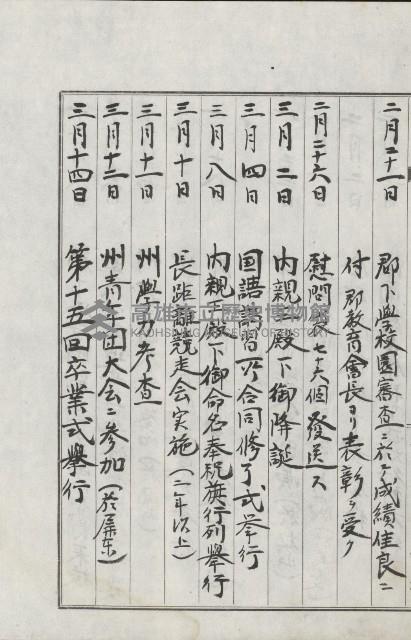 二月二十一日 郡下學校園審査ニ於テ成績佳良ニ
付郡教育會長ヨリ表彰ヲ受ク
二月二十六日 慰問袋七十六個發送ス
三月二日 內親王殿下御降誕
三月四日 国語講習所合同修了式举行
三月八日 內親王殿下御命名奉祝旗行列舉行
三月十日 長距離競走会実施(二年以上)
三月十一日 州學力考查
三月十二日 州青年団大会ニ参加(於屏东)
三月十四日 第十五回卒業式舉行
高雄市立歷史博物館